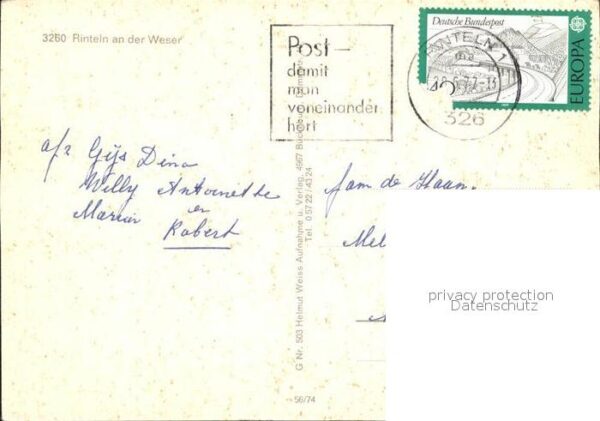 3260 Rinteln an der Weser
Post –
damit
man
voneinander
hört
RINTELN 1
326
Deutsche Bundespost
EUROPA
a/z Gijs Dina
Willy Antoinette
Marian en
Robert
G Nr. 503 Helmut Weiss Aufnahme u. Verlag, 4967 Bückeburg
Tel. 0 57 22 / 43 24
56/74
fam de Haan.
Mel
privacy protection
Datenschutz